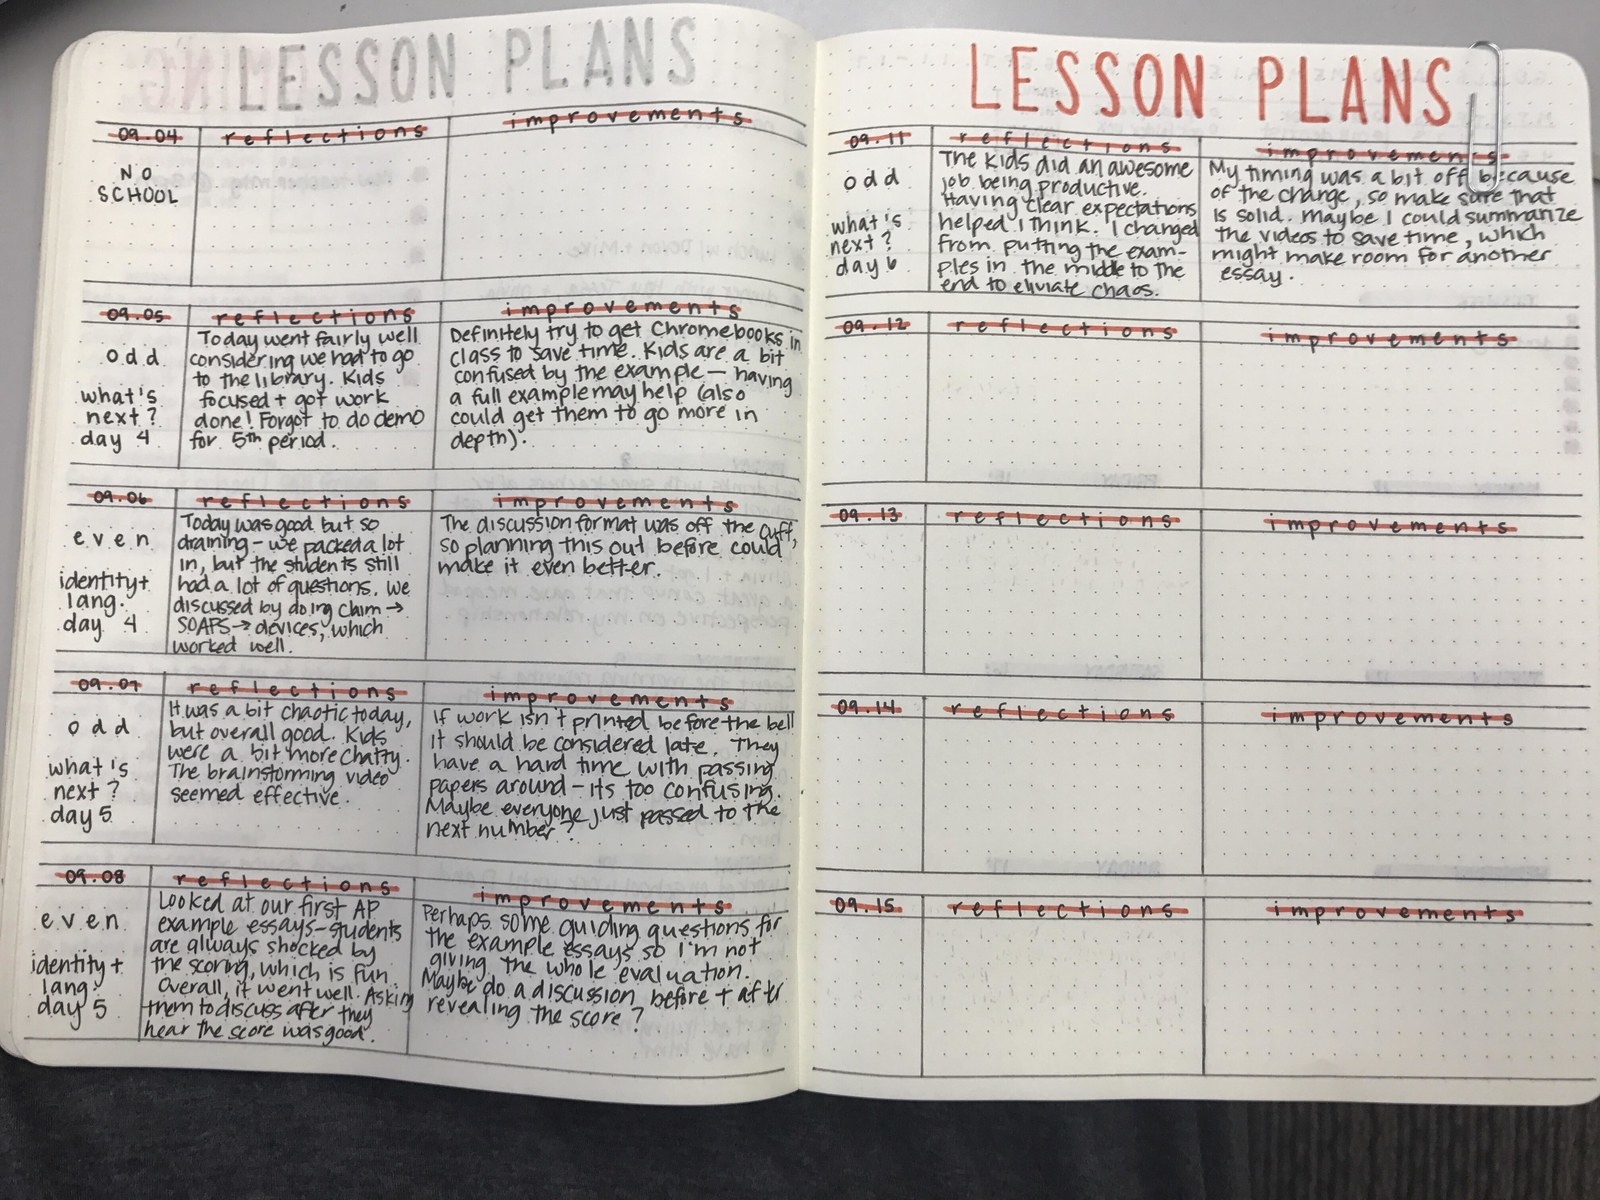 LESSON PLANS
09.04
reflections
improvements
NO
SCHOOL
09.05
reflections
improvements
odd
what's
next?
day 4
Today went fairly well
considering we had to go
to the library. Kids
focused + got work
done! Forgot to do demo
for 5th period.
Definitely try to get Chromebooks in
class to save time. Kids are a bit
confused by the example — having
a full example may help (also
could get them to go more in
depth).
09.06
reflections
improvements
even
identity +
lang.
day 4
Today was good but so
draining - we packed a lot
in, but the students still
had a lot of questions. We
discussed by doing claim →
SOAPS → devices, which
worked well.
The discussion format was off the cuff,
so planning this out before could
make it even better.
09.07
reflections
improvements
odd
what's
next?
day 5
It was a bit chaotic today,
but overall good. Kids
were a bit more chatty.
The brainstorming video
seemed effective.
If work isn't printed before the bell
it should be considered late. They
have a hard time with passing
papers around - its too confusing.
Maybe everyone just passed to the
next number?
09.08
reflections
improvements
even
identity +
lang.
day 5
Looked at our first AP
example essays - students
are always shocked by
the scoring, which is fun.
Overall, it went well. Asking
them to discuss after they
hear the score was good.
Perhaps some guiding questions for
the example essays so I'm not
giving the whole evaluation.
Maybe do a discussion before + after
revealing the score?
LESSON PLANS
09.11
reflections
improvements
odd
what's
next?
day 6
The kids did an awesome
job being productive.
Having clear expectations
helped I think. I changed
from putting the exam-
ples in the middle to the
end to eliviate chaos.
My timing was a bit off because
of the change, so make sure that
is solid. Maybe I could summarize
the videos to save time, which
might make room for another
essay.
09.12
reflections
improvements
09.13
reflections
improvements
09.14
reflections
improvements
09.15
reflections
improvements